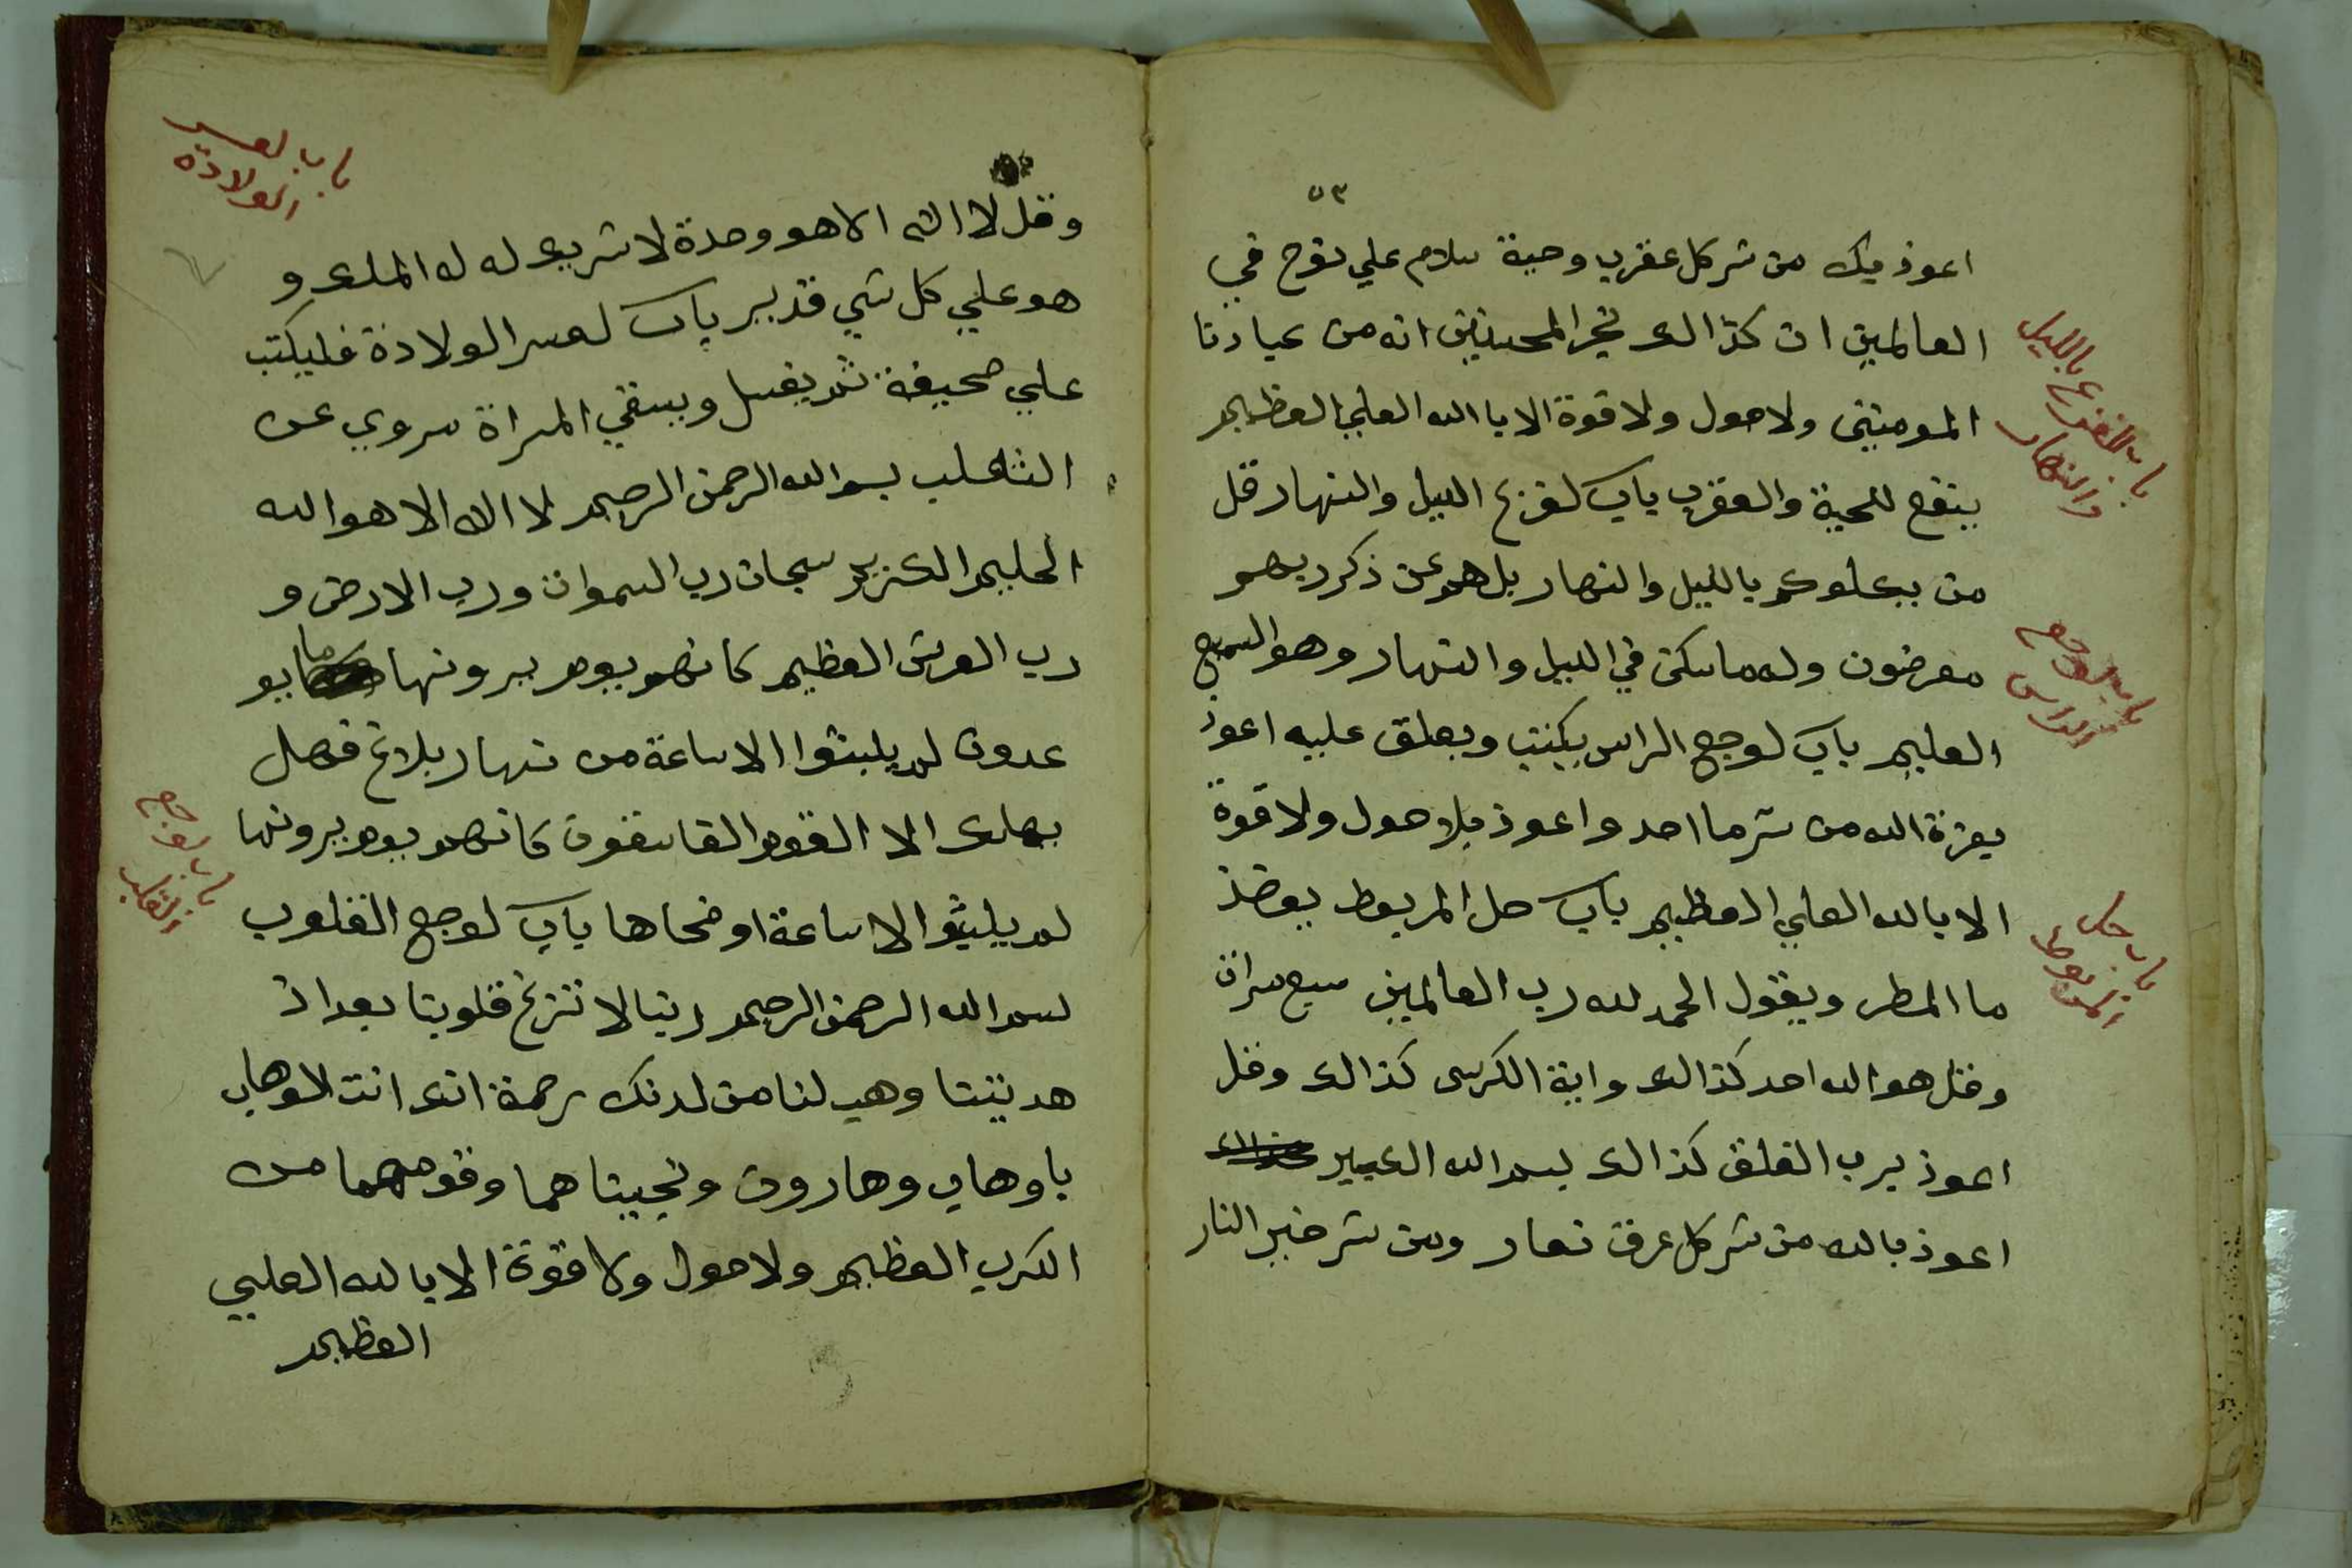 ٥٣
اعوذ بك من شر كل عقرب وحية سلام علي نوح في
العالمين ان كذالك نجز المحسنين انه من عبادنا
المومنين ولا حول ولا قوة الا باالله العلي العظيم
ينفع للحية والعقرب باب لفزع الليل والنهار قل
من يكلوكم بالليل والنهار بل هم عن ذكر ربهم
معرضون وله ما سكن في الليل والنهار وهو السميع
العليم باب لوجع الراس يكتب ويعلق عليه اعوذ
بعزة الله من شر ما احد واعوذ بلا حول ولا قوة
الا بالله العلي العظيم باب حل المربوط يوخذ
ما المطر ويقول الحمد لله رب العالمين سبع مرات
وقل هو الله احد كذالك واية الكرسى كذالك وقل
اعوذ برب الفلق كذالك بسم الله الكبير
اعوذ بالله من شر كل عرق نعار ومن شر النار
باب الفزع بالليل
والنهار
باب لوجع
الراس
باب حل
المربوط
وقل لا اله الا هو وحدة لا شريك له له الملك و
هو علي كل شي قدير باب لعسر الولادة فليكتب
علي صحيفة ثم يغسل ويسقي المراة مروي عن
الثاعلب بسم الله الرحمن الرحيم لا اله الا هو الله
الحليم الكريم سبحان رب السموات ورب الارض و
رب العرش العظيم كانهم يوم يرونها ما يو
عدون لم يلبثوا الا ساعة من نهار بلاغ فهل
يهلك الا القوم الفاسقون كانهم يوم يرونها
لم يلبثوا الا ساعة او ضحاها باب لوجع القلوب
بسم الله الرحمن الرحيم ربنا لا تزغ قلوبنا بعد اذ
هديتنا وهب لنا من لدنك رحمة انك انت الوهاب
يا وهاب وهارون ونجيناهما وقومهما من
الكرب العظيم ولا حول ولا قوة الا بالله العلي
العظيم
باب لعسر
الولادة
باب لوجع
القلب